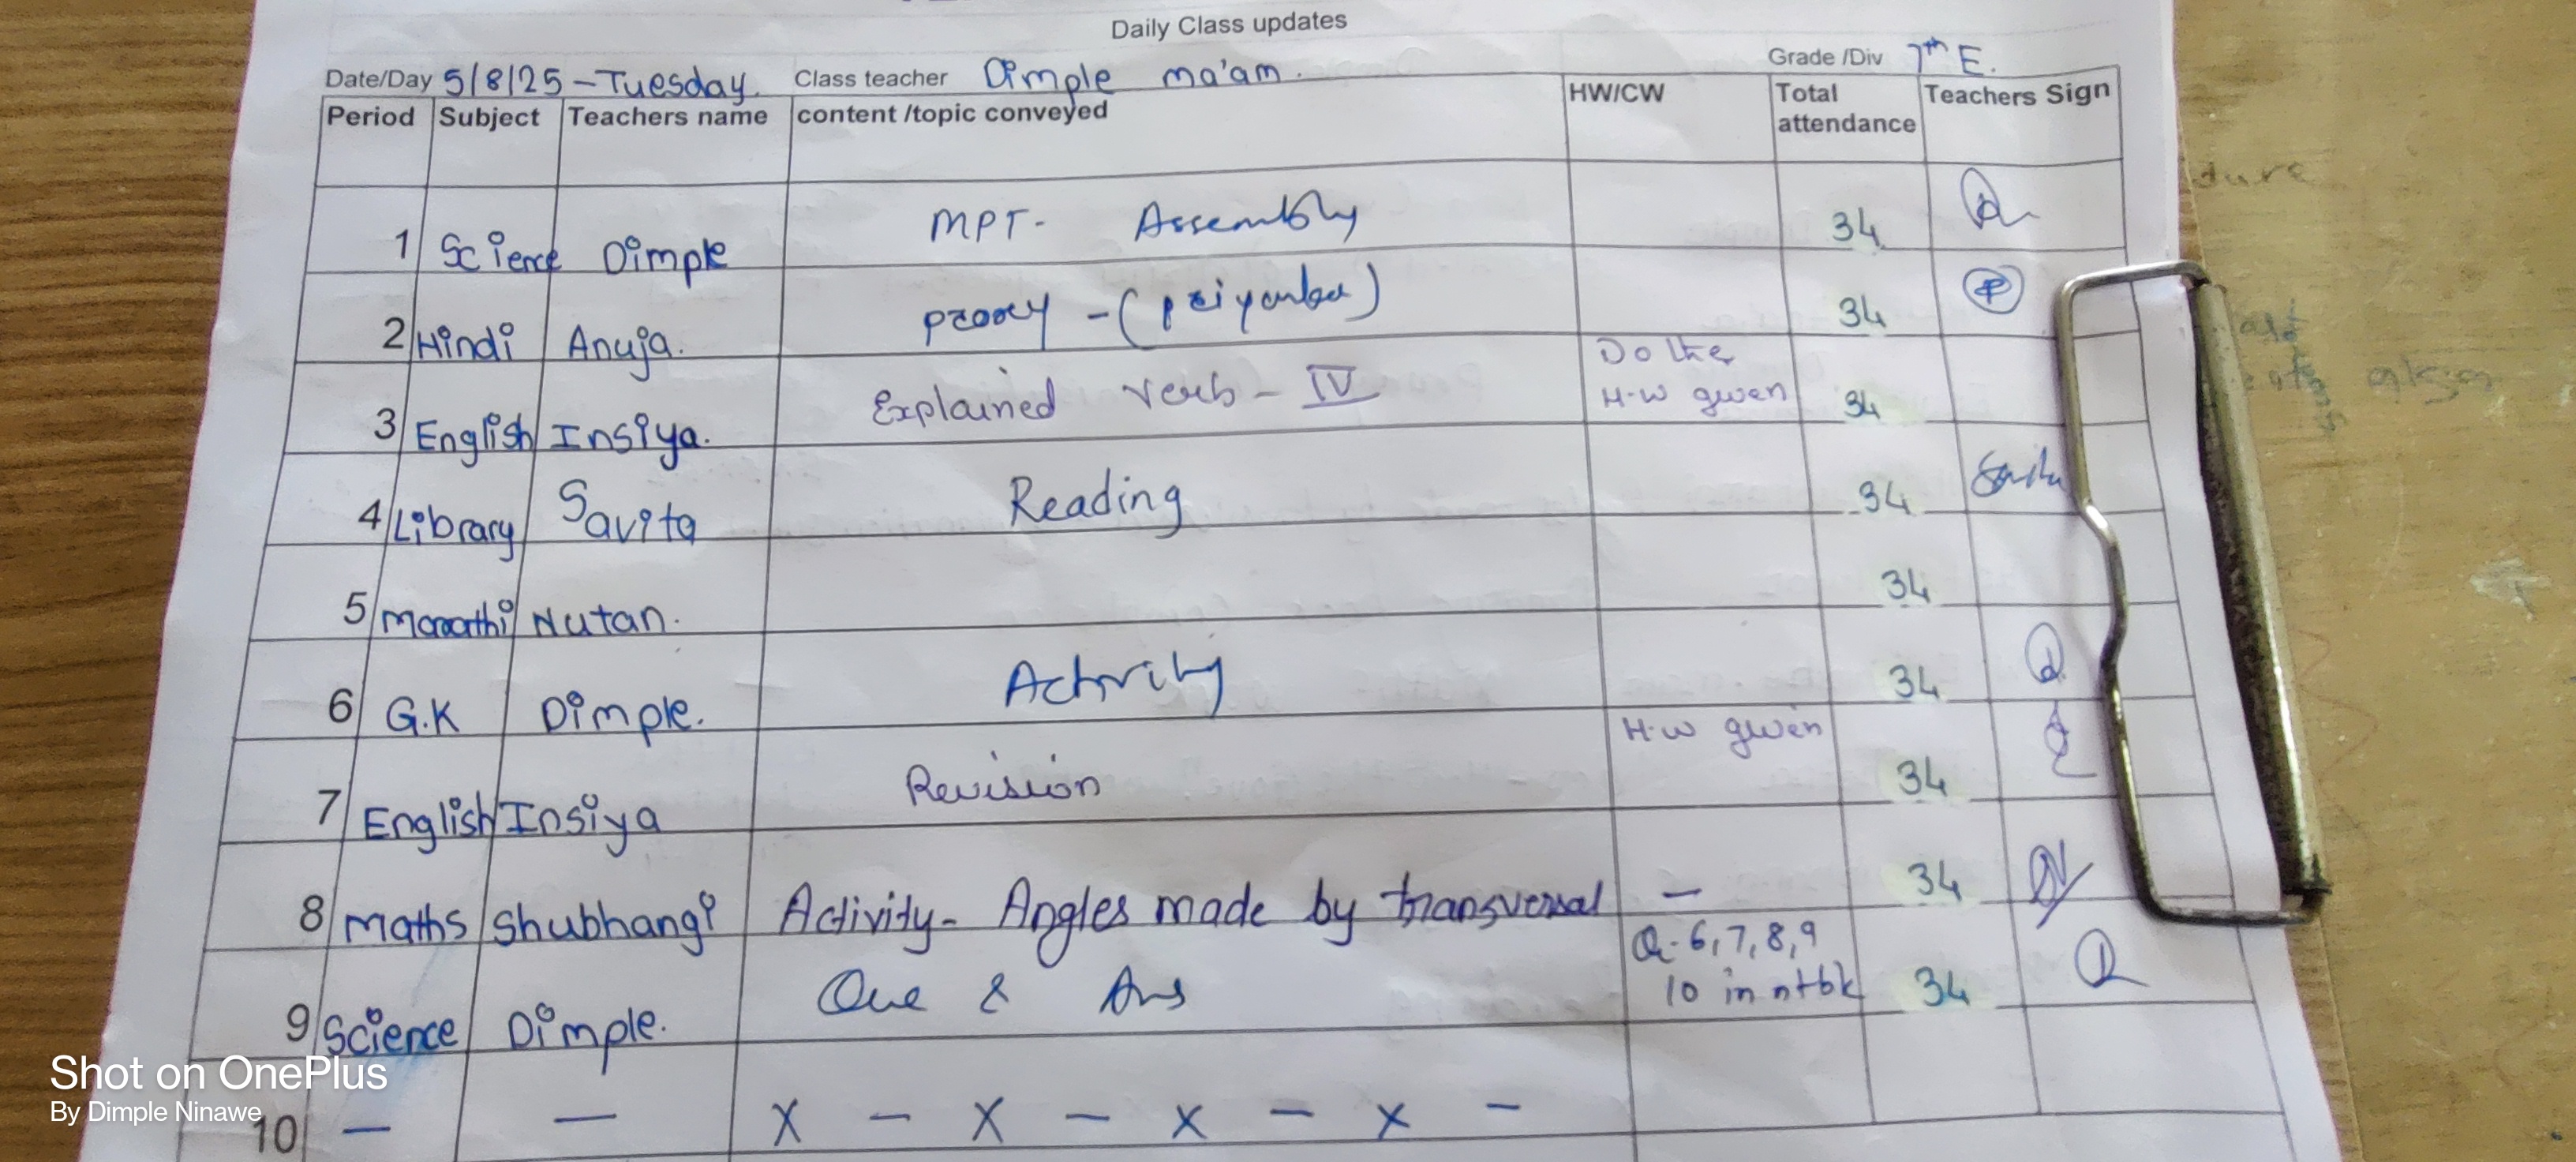 Daily Class updates
Date/Day 5/8/25 - Tuesday. Class teacher Dimple ma'am. Grade /Div 7th E.
Period Subject Teachers name content /topic conveyed HW/CW Total attendance Teachers Sign
1 Science Dimple MPT- Assembly 34
2 Hindi Anuja. proxy - (Priyanka) 34
3 English Insiya. Explained Verb - IV Do the H.W given 34
4 Library Savita Reading 34
5 Marathi Nutan. 34
6 G.K Dimple. Activity 34
7 English Insiya Revision H.W given 34
8 Maths Shubhangi Activity- Angles made by transversal — 34
9 Science Dimple. Que & Ans Q.6,7,8,9 10 in ntbk 34
10 — — X — X — X — X —
Shot on OnePlus
By Dimple Ninawe